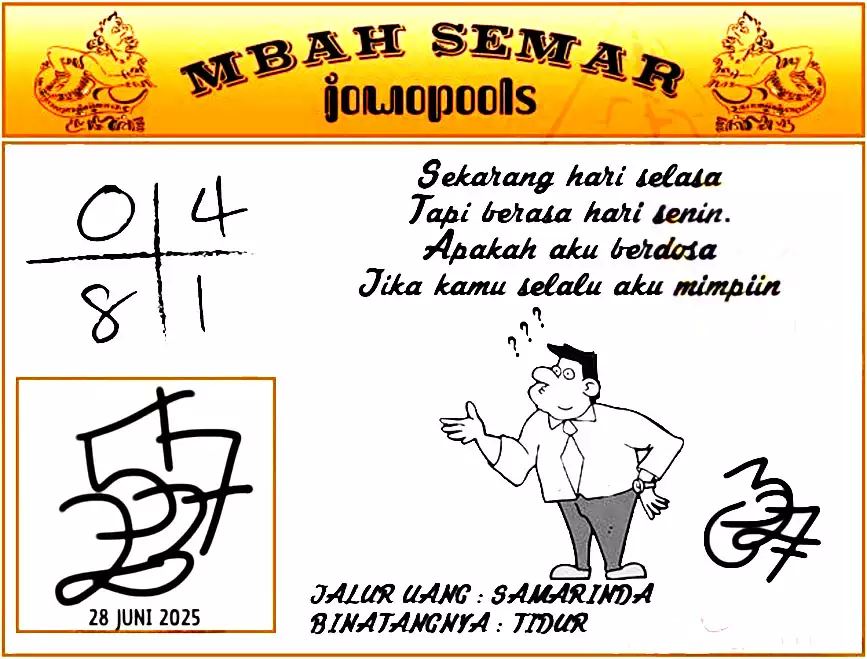 MBAH SEMAR
jowopools
0 4
8 1
Sekarang hari selasa
Tapi berasa hari senin.
Apakah aku berdosa
Jika kamu selalu aku mimpiin
? ? ?
28 JUNI 2025
JALUR UANG : SAMARINDA
BINATANGNYA : TIDUR